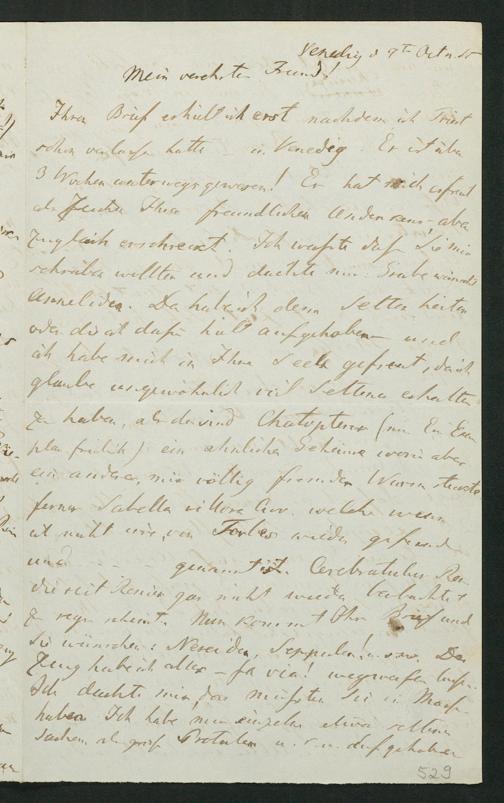 Venedig d 9t Oct
Mein verehrter Freund!
Ihren Brief erhielt ich erst nachdem ich Triest
schon verlassen hatte – in Venedig. Er ist über
3 Wochen unterwegs gewesen! Er hat mich erfreut
als Zeichen Ihres freundlichen Andenkens aber
zugleich erschreckt. Ich wußte daß Sie mir
schreiben wollten und dachte mir Sie wünschen
Anneliden. Da habe ich denn
oder die ich dafür hielt aufgehoben und
ich habe mich in Ihre Seele gefreut, da ich
glaube ungewöhnlich viel Seltenes erhalten
zu haben, als da sind Chätopterus (nur Ein Exem
plar freilich) ein ähnliches Gehäuse worin aber
ein anderer, mir völlig fremder Wurm steckte
ferner Sabella welche wenn
ich nicht irre, von Forbes wieder gefunden
und genannt ist. Cerebratulus
die seit Renier gar nicht wieder beobachtet
zu seyn scheint. Nun kommt Ihr Brief und
Sie wünschen: Nereiden, u.s.w. Das
Zeug habe ich alles – fa via! wegwerfen lassen.
Ich dachte mir, das müßten Sie in Masse
haben. Ich habe nur einzelne etwa seltene
Sachen, als große Protulen u. s. w. aufgehoben
529